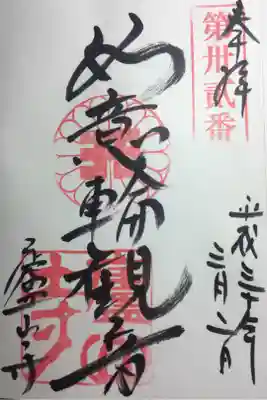 第卅貳番
奉拝
平成三十年
三月二日
如意輪観音
廬山寺